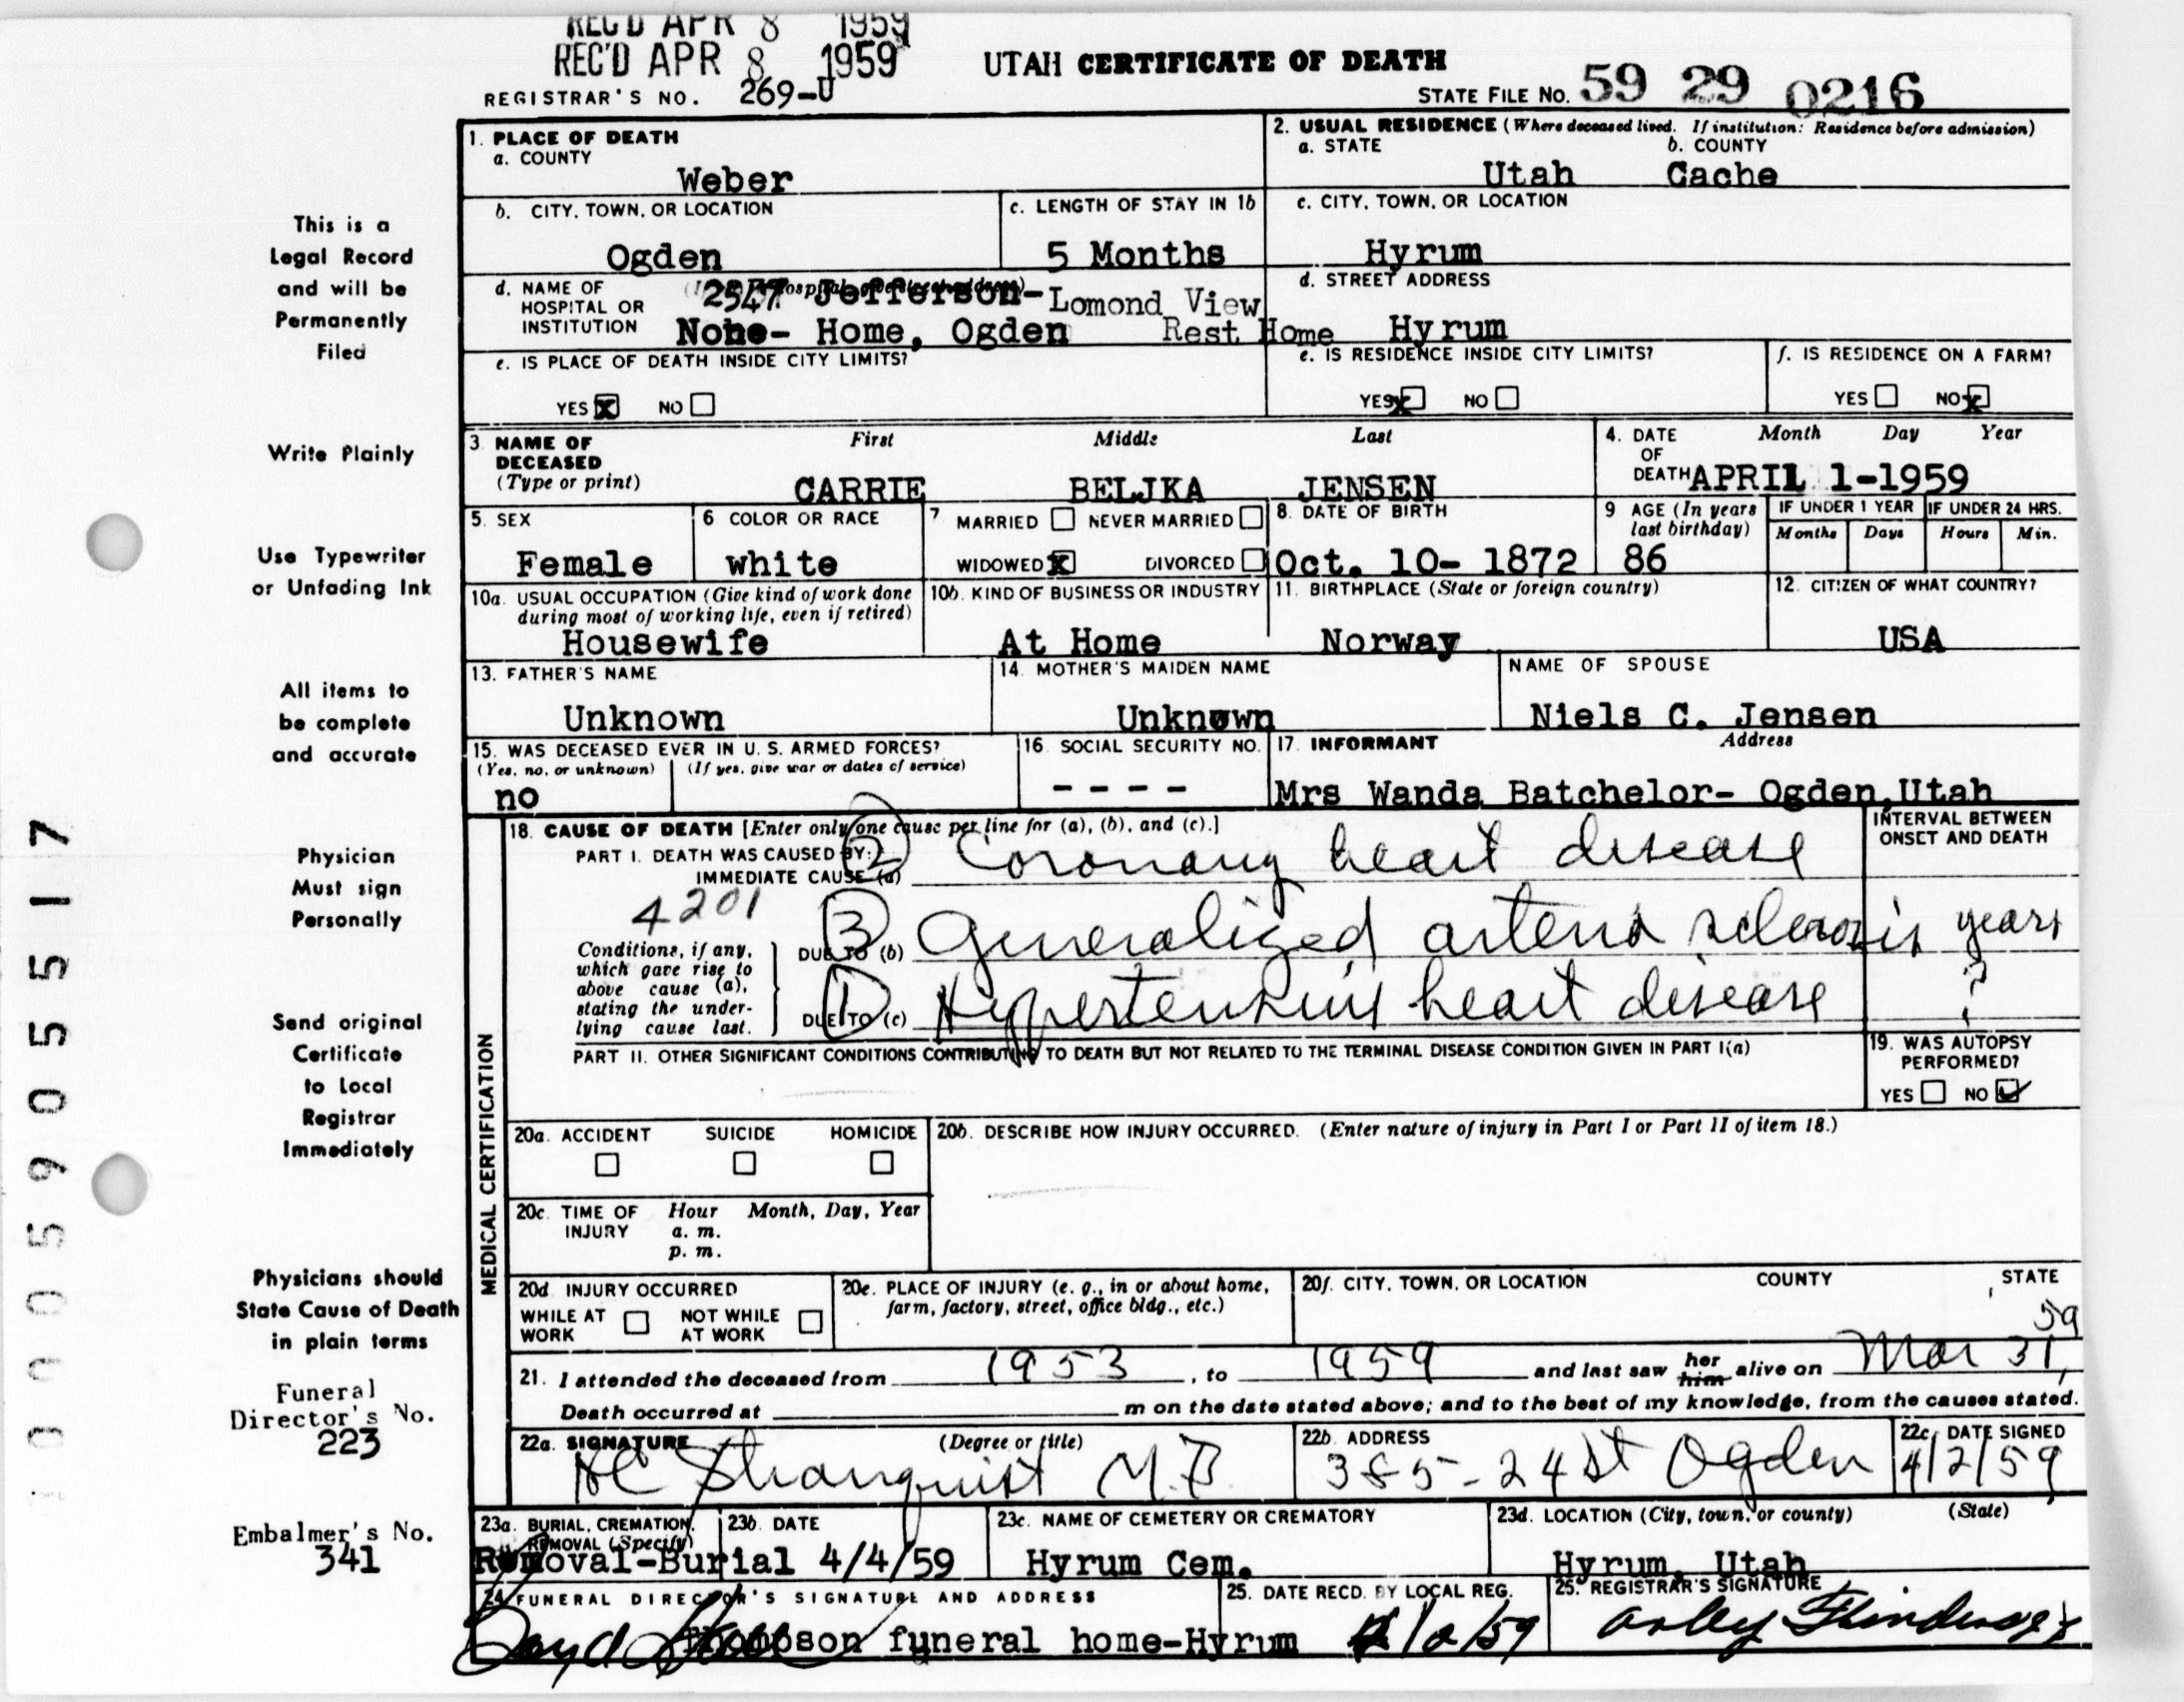 REC'D APR 8 1959
REC'D APR 8 1959
UTAH CERTIFICATE OF DEATH
REGISTRAR'S NO. 269-U
STATE FILE NO. 59 29 0216
1. PLACE OF DEATH
a. COUNTY
Weber
2. USUAL RESIDENCE (Where deceased lived. If institution: Residence before admission)
a. STATE
b. COUNTY
Utah Cache
b. CITY, TOWN, OR LOCATION
Ogden
c. LENGTH OF STAY IN 1b
5 Months
c. CITY, TOWN, OR LOCATION
Hyrum
d. NAME OF HOSPITAL OR INSTITUTION
2547 Jefferson- Lomond View
None- Home, Ogden Rest Home
d. STREET ADDRESS
Hyrum
e. IS PLACE OF DEATH INSIDE CITY LIMITS?
YES X NO
e. IS RESIDENCE INSIDE CITY LIMITS?
YES X NO
f. IS RESIDENCE ON A FARM?
YES NO X
3. NAME OF DECEASED (Type or print)
First Middle Last
CARRIE BELJKA JENSEN
4. DATE OF DEATH
Month Day Year
APRIL 1-1959
5. SEX
Female
6 COLOR OR RACE
white
7 MARRIED NEVER MARRIED
WIDOWED X DIVORCED
8. DATE OF BIRTH
Oct. 10- 1872
9 AGE (In years last birthday)
86
IF UNDER 1 YEAR
Months Days
IF UNDER 24 HRS.
Hours Min.
10a. USUAL OCCUPATION (Give kind of work done during most of working life, even if retired)
Housewife
10b. KIND OF BUSINESS OR INDUSTRY
At Home
11. BIRTHPLACE (State or foreign country)
Norway
12. CITIZEN OF WHAT COUNTRY?
USA
13. FATHER'S NAME
Unknown
14. MOTHER'S MAIDEN NAME
Unknown
NAME OF SPOUSE
Niels C. Jensen
15. WAS DECEASED EVER IN U. S. ARMED FORCES?
(Yes, no, or unknown) (If yes, give war or dates of service)
no
16. SOCIAL SECURITY NO.
- - - -
17. INFORMANT Address
Mrs Wanda Batchelor- Ogden,Utah
MEDICAL CERTIFICATION
18. CAUSE OF DEATH [Enter only one cause per line for (a), (b), and (c).]
INTERVAL BETWEEN ONSET AND DEATH
PART I. DEATH WAS CAUSED BY:
IMMEDIATE CAUSE (a) 2 Coronary heart disease
4201
Conditions, if any, which gave rise to above cause (a), stating the underlying cause last.
DUE TO (b) 3 Generalized arterio sclerosis years
DUE TO (c) 1 Hypertensive heart disease ?
PART II. OTHER SIGNIFICANT CONDITIONS CONTRIBUTING TO DEATH BUT NOT RELATED TO THE TERMINAL DISEASE CONDITION GIVEN IN PART I(a)
19. WAS AUTOPSY PERFORMED?
YES NO ✓
20a. ACCIDENT SUICIDE HOMICIDE
20b. DESCRIBE HOW INJURY OCCURRED. (Enter nature of injury in Part I or Part II of item 18.)
20c. TIME OF INJURY
Hour Month, Day, Year
a. m.
p. m.
20d INJURY OCCURRED
WHILE AT WORK NOT WHILE AT WORK
20e. PLACE OF INJURY (e. g., in or about home, farm, factory, street, office bldg., etc.)
20f. CITY, TOWN, OR LOCATION COUNTY STATE
21. I attended the deceased from 1953, to 1959 and last saw her him alive on Mar 31, 59
Death occurred at m on the date stated above; and to the best of my knowledge, from the causes stated.
22a. SIGNATURE (Degree or title)
HC Stranquist M.D.
22b. ADDRESS
385-24 St Ogden
22c. DATE SIGNED
4/2/59
23a. BURIAL, CREMATION, REMOVAL (Specify)
Removal-Burial
23b. DATE
4/4/59
23c. NAME OF CEMETERY OR CREMATORY
Hyrum Cem.
23d. LOCATION (City, town, or county) (State)
Hyrum, Utah
24 FUNERAL DIRECTOR'S SIGNATURE AND ADDRESS
Thompson funeral home-Hyrum
25. DATE RECD. BY LOCAL REG.
25. REGISTRAR'S SIGNATURE
This is a
Legal Record
and will be
Permanently
Filed
Write Plainly
Use Typewriter
or Unfading Ink
All items to
be complete
and accurate
Physician
Must sign
Personally
Send original
Certificate
to Local
Registrar
Immediately
Physicians should
State Cause of Death
in plain terms
Funeral
Director's No.
223
Embalmer's No.
341
10005905517